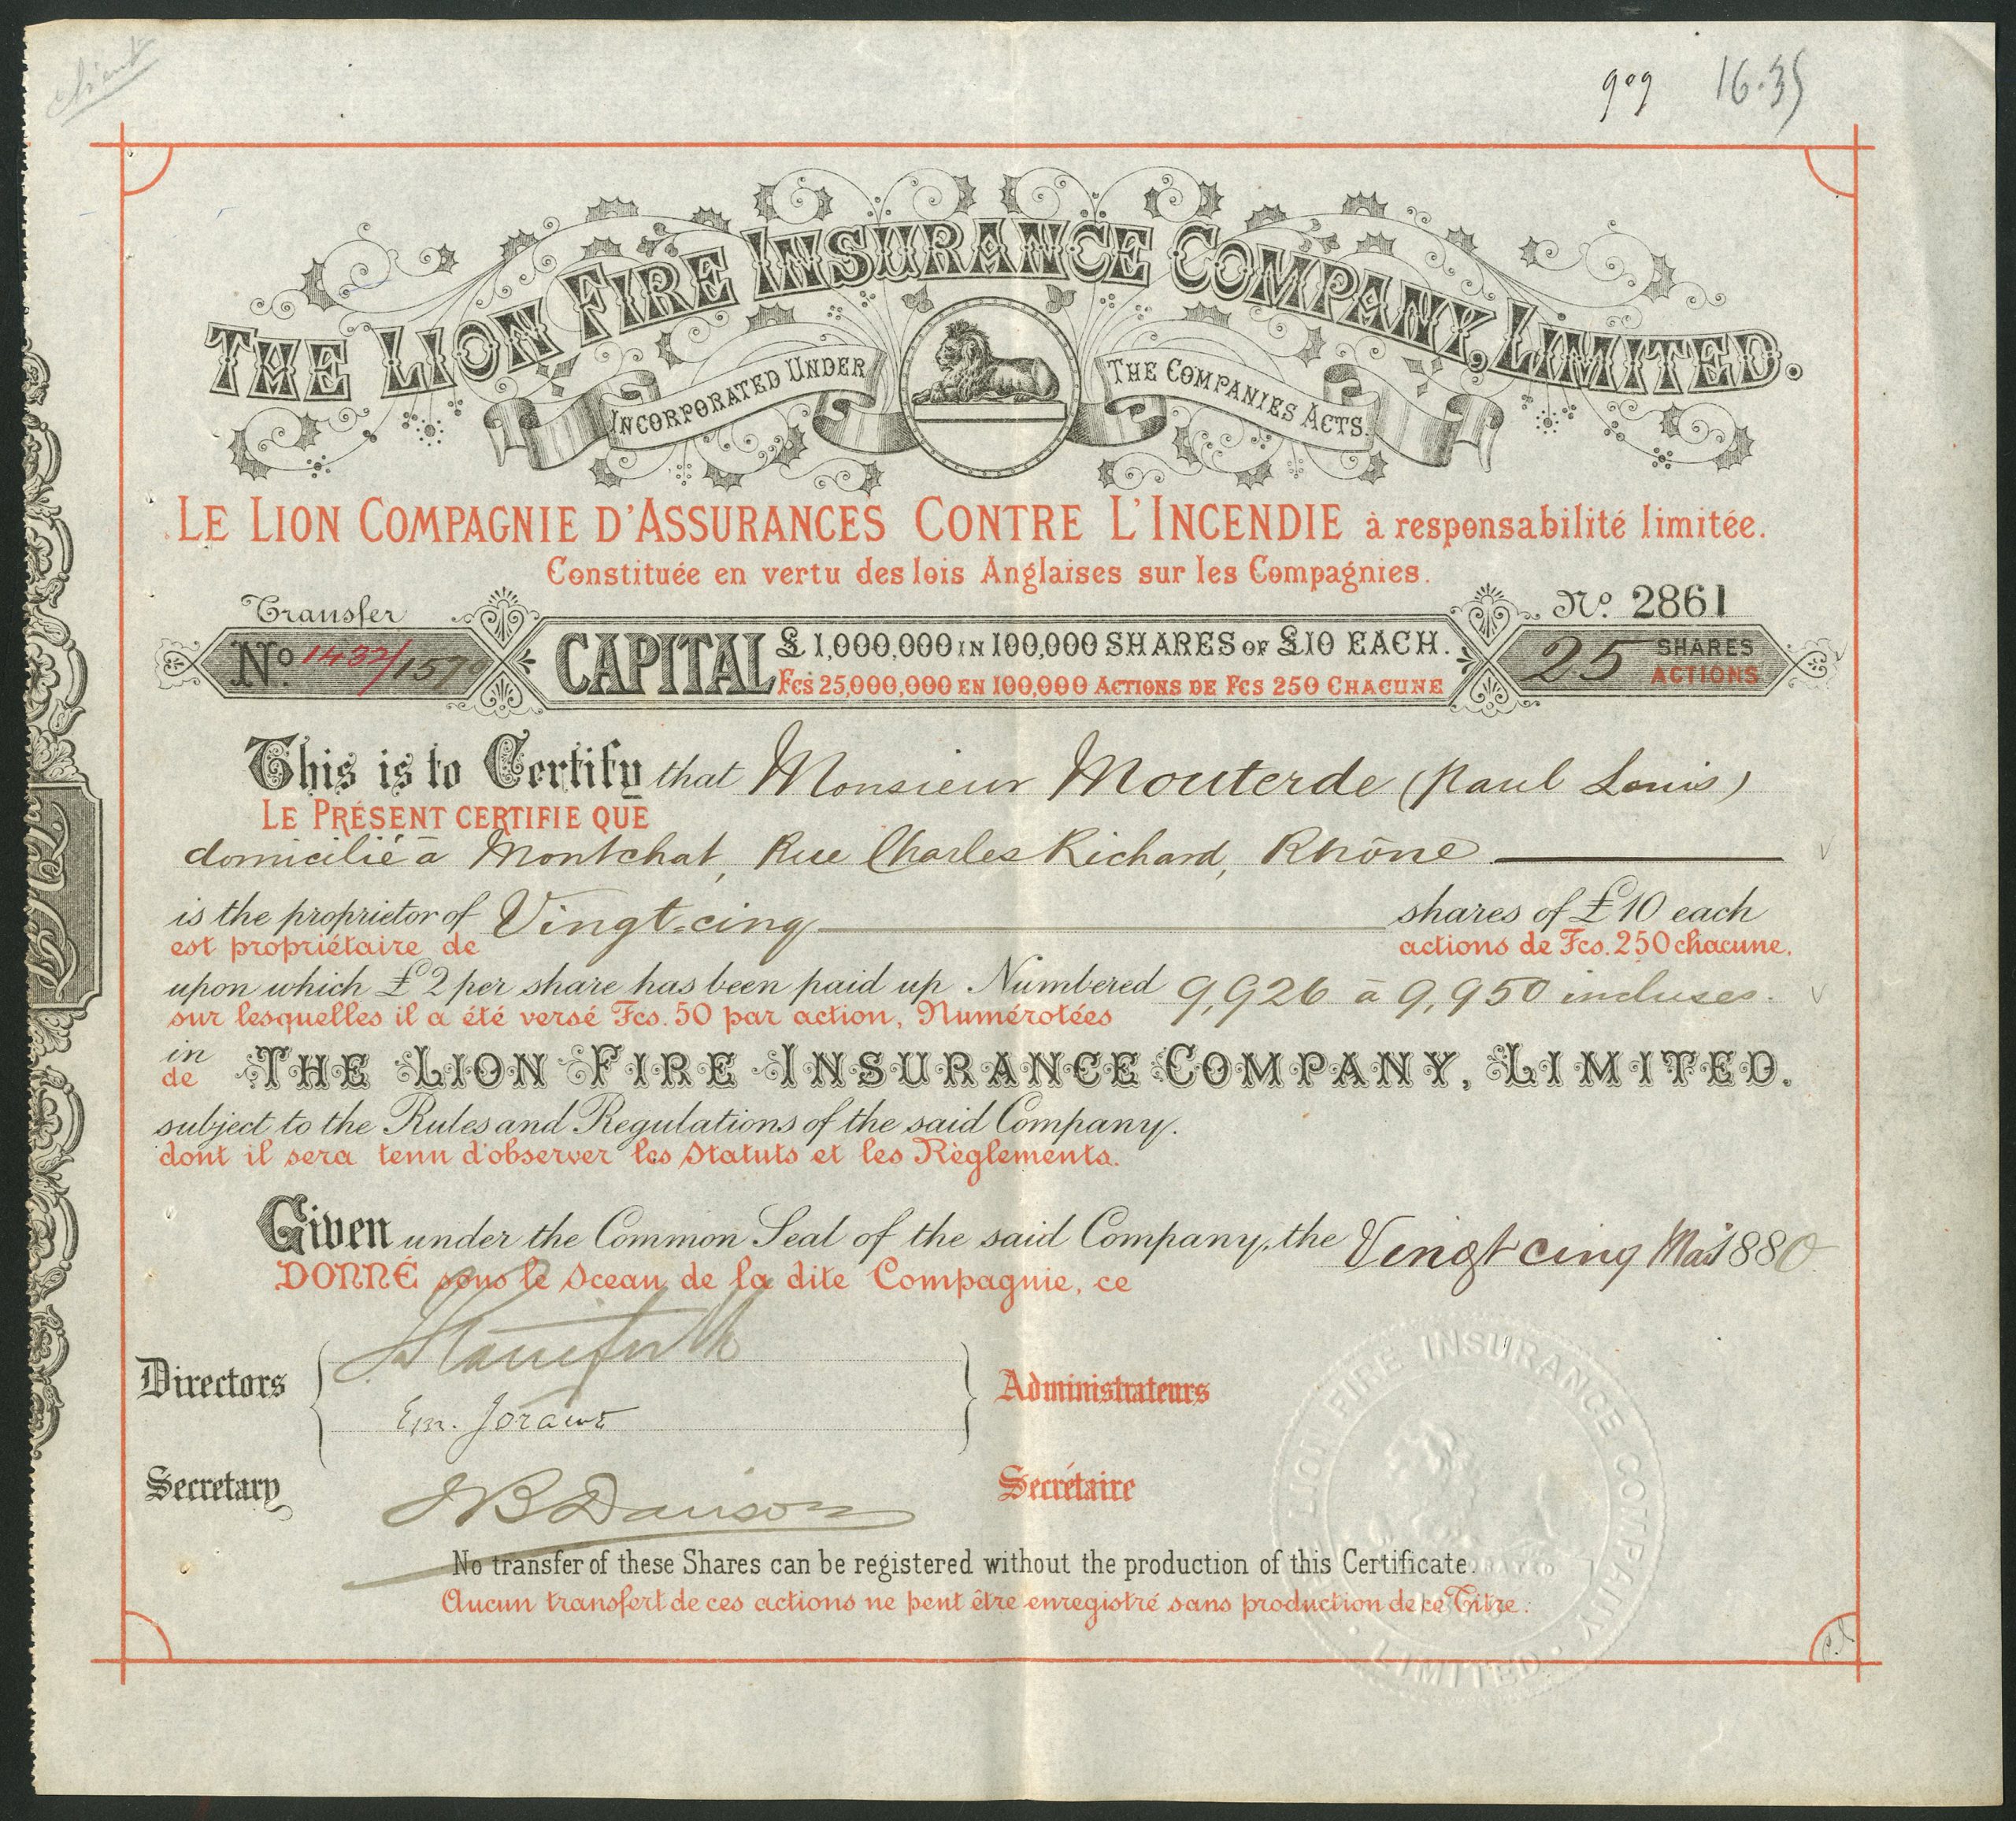 client
909 16.35
THE LION FIRE INSURANCE COMPANY, LIMITED.
INCORPORATED UNDER THE COMPANIES ACTS.
LE LION COMPAGNIE D'ASSURANCES CONTRE L'INCENDIE à responsabilité limitée.
Constituée en vertu des lois Anglaises sur les Compagnies.
Transfer Nº 2861
Nº 1432/1570 CAPITAL £1,000,000 IN 100,000 SHARES OF £10 EACH. 25 SHARES
Fcs 25,000,000 EN 100,000 ACTIONS DE FCS 250 CHACUNE ACTIONS
This is to Certify that Monsieur Mouterde (Paul Louis)
LE PRÉSENT CERTIFIE QUE
domicilié à Montchat, Rue Charles Richard, Rhône
is the proprietor of Vingt-cinq shares of £10 each
est propriétaire de actions de Fcs. 250 chacune.
upon which £2 per share has been paid up Numbered 9,926 à 9,950 incluses.
sur lesquelles il a été versé Fcs. 50 par action, Numérotées
in THE LION FIRE INSURANCE COMPANY, LIMITED.
de
subject to the Rules and Regulations of the said Company.
dont il sera tenu d'observer les Statuts et les Règlements.
Given under the Common Seal of the said Company, the Vingt cinq Mai 1880
DONNÉ sous le Sceau de la dite Compagnie, ce
Directors Administrateurs
Em.
Secretary JB Davison Secrétaire
LION FIRE INSURANCE COMPANY LIMITED
No transfer of these Shares can be registered without the production of this Certificate.
Aucun transfert de ces actions ne peut être enregistré sans production de ce Titre.